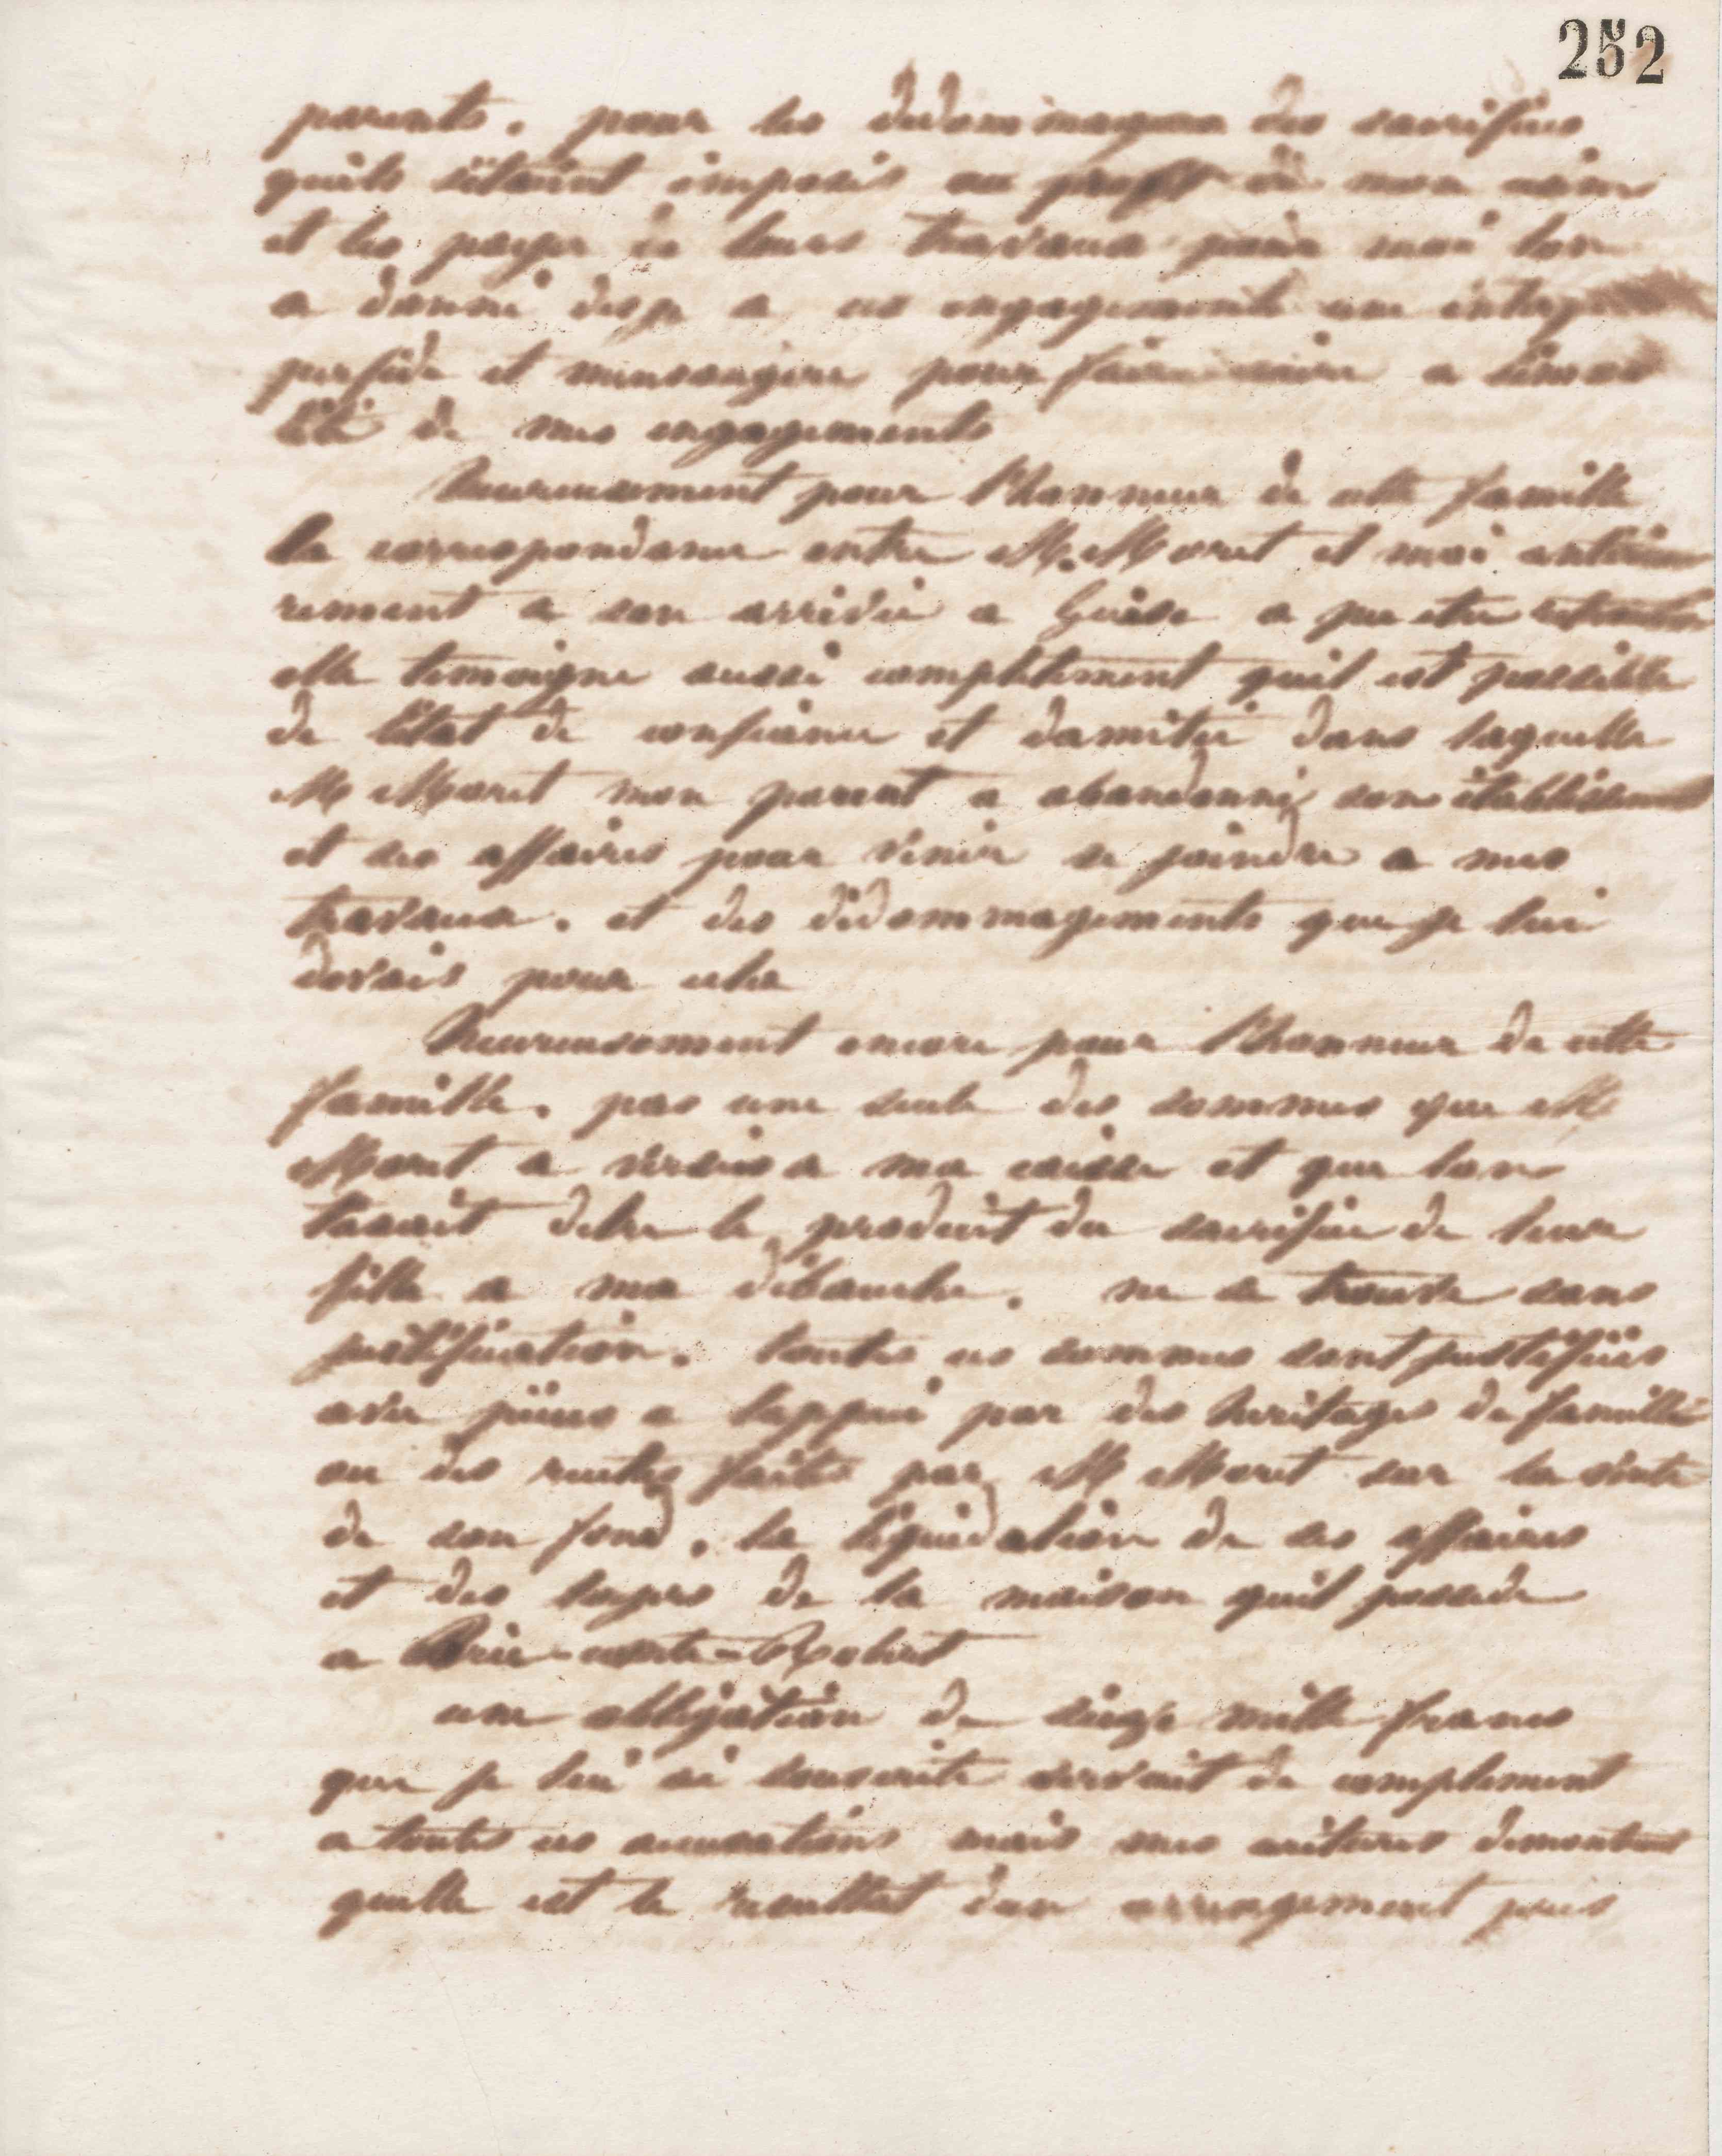 252
parents. pour les dedommager des sacrifices
quils sétaient imposés au profit de mon
et les payer de leurs travaux pour moi lon
a donné deja a ces engagements une
perfide et mensongère pour faire croire a
de mes engagements
Heureusement pour l'honneur de cette famille
la correspondance entre M. Moret et moi antérieu
rement a son arrivée a Guise a pu etre
elle temoigne aussi completement quil est possible
de létat de confiance et damitié dans laquelle
M Moret mon parent a abandonné son établissement
et ses affaires pour venir se joindre a mes
travaux. et des dédommagements que je lui
devais pour cela
Heureusement encore pour l'honneur de cette
famille. pas une seule des sommes que M
Moret a versées a ma caisse et que lon
taxait detre le produit du sacrifice de leur
fille a ma débauche. ne se trouve sans
justification. toutes ces sommes sont justifiées
avec pièces a lappui par des heritages de famille
ou des rentes faites par M Moret sur la vente
de son fond. la liquidation de ses affaires
et des loyers de la maison quil possede
a Brie-comte-Robert
une obligation de seize mille francs
que je lui ai souscrite servait de complement
a toutes ces accusations mais mes ecritures demontrent
quelle est le resultat dun arrangement pris